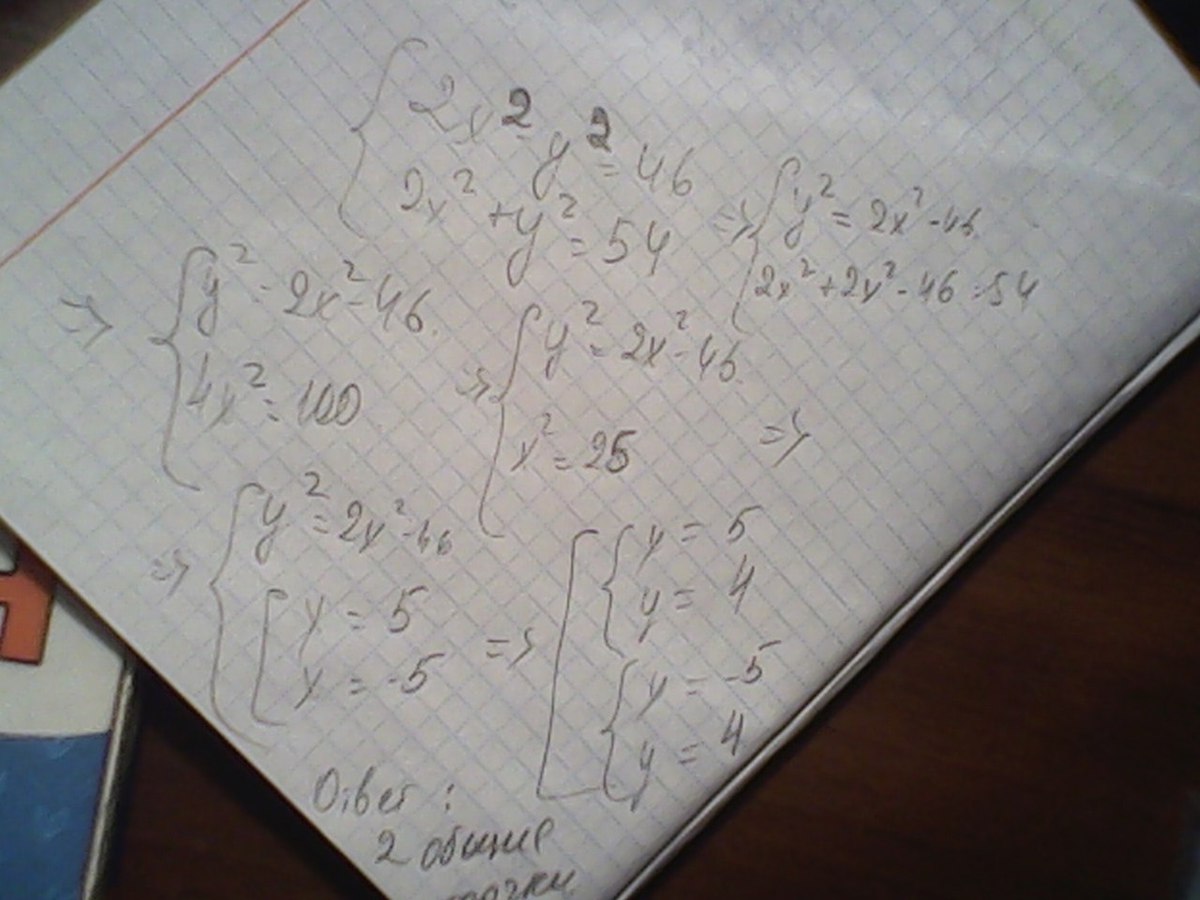 { 2x² - y² = 46
2x² + y² = 54
=> { y² = 2x² - 46
2x² + 2x² - 46 = 54
=> { y² = 2x² - 46.
4x² = 100
=> { y² = 2x² - 46.
x² = 25
=>
=> { y² = 2x² - 46
[ x = 5
x = -5
=> [ { x = 5
y = 4
{ x = -5
y = 4
Ответ :
2 общие
точки